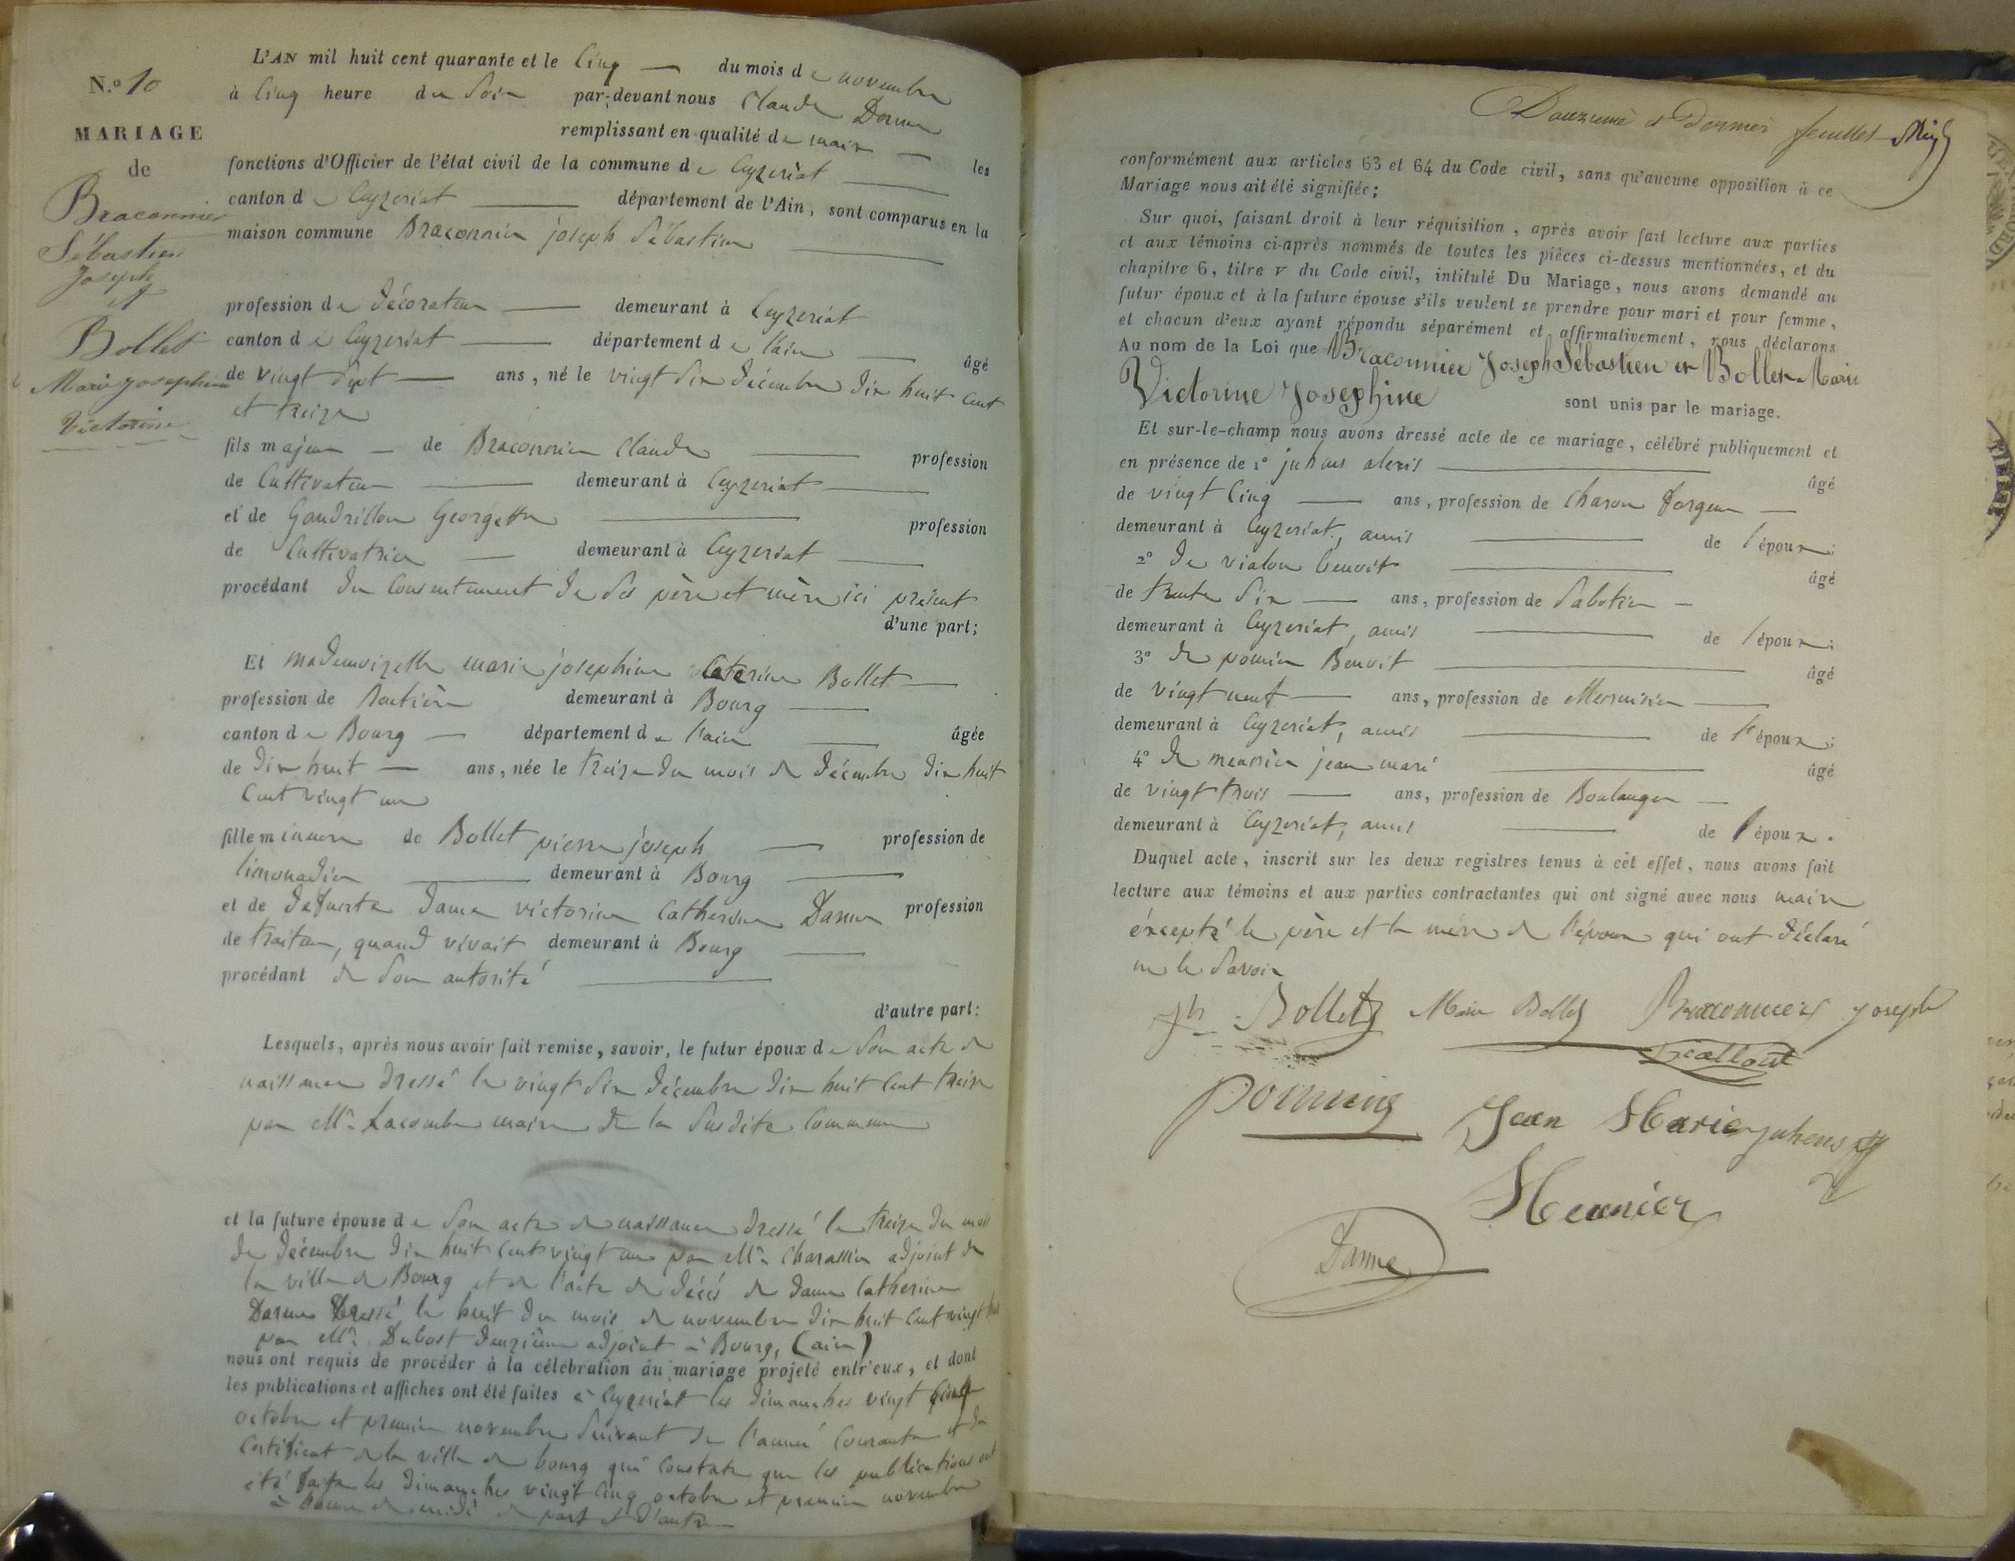 N.o 10
MARIAGE
de
Braconnier
Sébastien
Joseph
et
Bollet
Marie josephine
Victorine
L'AN mil huit cent quarante et le cinq du mois de novembre
à cinq heure du soir par-devant nous Claude Darme
remplissant en qualité de maire les
fonctions d'Officier de l'état civil de la commune de Ceyzeriat
canton de Ceyzeriat département de l'Ain, sont comparus en la
maison commune Braconnier joseph Sébastien
profession de Décorateur demeurant à Ceyzeriat
canton de Ceyzeriat département de l'ain âgé
de vingt six ans, né le vingt six Décembre dix huit cent
et treize
fils majeur de Braconnier Claude profession
de Cultivateur demeurant à Ceyzeriat
et de Gaudrillon Georgette profession
de Cultivatrice demeurant à Ceyzeriat
procédant du consentement de ses père et mère ici présent
d'une part;
Et mademoizelle marie josephine Bollet
profession de Rentière demeurant à Bourg
canton de Bourg département de l'ain âgée
de dix huit ans, née le treize du mois de décembre dix huit
cent vingt un
fille mineure de Bollet pierre joseph profession de
limonadier demeurant à Bourg
et de défunte dame victorine Catherine Darme profession
de traiteur, quand vivait demeurant à Bourg
procédant de son autorité
d'autre part:
Lesquels, après nous avoir fait remise, savoir, le futur époux de son acte de
naissance dressé le vingt six décembre dix huit cent treize
par Mr. Lacombe maire de la susdite commune
et la future épouse de son acte de naissance dressé le treize du mois
de décembre dix huit cent vingt un par Mr. Charassin adjoint de
la ville de Bourg et de l'acte de décès de dame Catherine
Darme dressé le huit du mois de novembre dix huit cent vingt
par Mr. Dubost deuzième adjoint à Bourg, (ain)
nous ont requis de procéder à la célébration du mariage projeté entr'eux, et dont
les publications et affiches ont été faites à Ceyzeriat les dimanches vingt cinq
octobre et premier novembre suivant de l'année courante et du
certificat de la ville de bourg qui constate que les publications ont
été faite les dimanches vingt cinq octobre et premier novembre
à heure de midi de part et d'autre
Douzieme et Dernier feuillet
conformément aux articles 63 et 64 du Code civil, sans qu'aucune opposition à ce
Mariage nous ait été signifiée;
Sur quoi, faisant droit à leur réquisition, après avoir fait lecture aux parties
et aux témoins ci-après nommés de toutes les pièces ci-dessus mentionnées, et du
chapitre 6, titre v du Code civil, intitulé Du Mariage, nous avons demandé au
futur époux et à la future épouse s'ils veulent se prendre pour mari et pour femme,
et chacun d'eux ayant répondu séparément et affirmativement, nous déclarons
Au nom de la Loi que Braconnier Joseph Sébastien et Bollet Marie
Victorine Josephine sont unis par le mariage.
Et sur-le-champ nous avons dressé acte de ce mariage, célébré publiquement et
en présence de 1o juhans alexis âgé
de vingt cinq ans, profession de charon forgeur
demeurant à Ceyzeriat, amis de l'époux;
2o de vialon benoit âgé
de trente six ans, profession de Sabotier
demeurant à Ceyzeriat, amis de l'époux;
3o de pomier Benoit âgé
de vingt neuf ans, profession de Menuisier
demeurant à Ceyzeriat, amis de l'époux;
4o de meunier jean marie âgé
de vingt trois ans, profession de Boulanger
demeurant à Ceyzeriat, amis de l'époux.
Duquel acte, inscrit sur les deux registres tenus à cet effet, nous avons fait
lecture aux témoins et aux parties contractantes qui ont signé avec nous maire
éxcepté le père et la mère de l'époux qui ont déclaré
ne le savoir
jh Bollet Marie Bollet Braconnier Joseph
Jean Marie juhens
Meunier
Darme